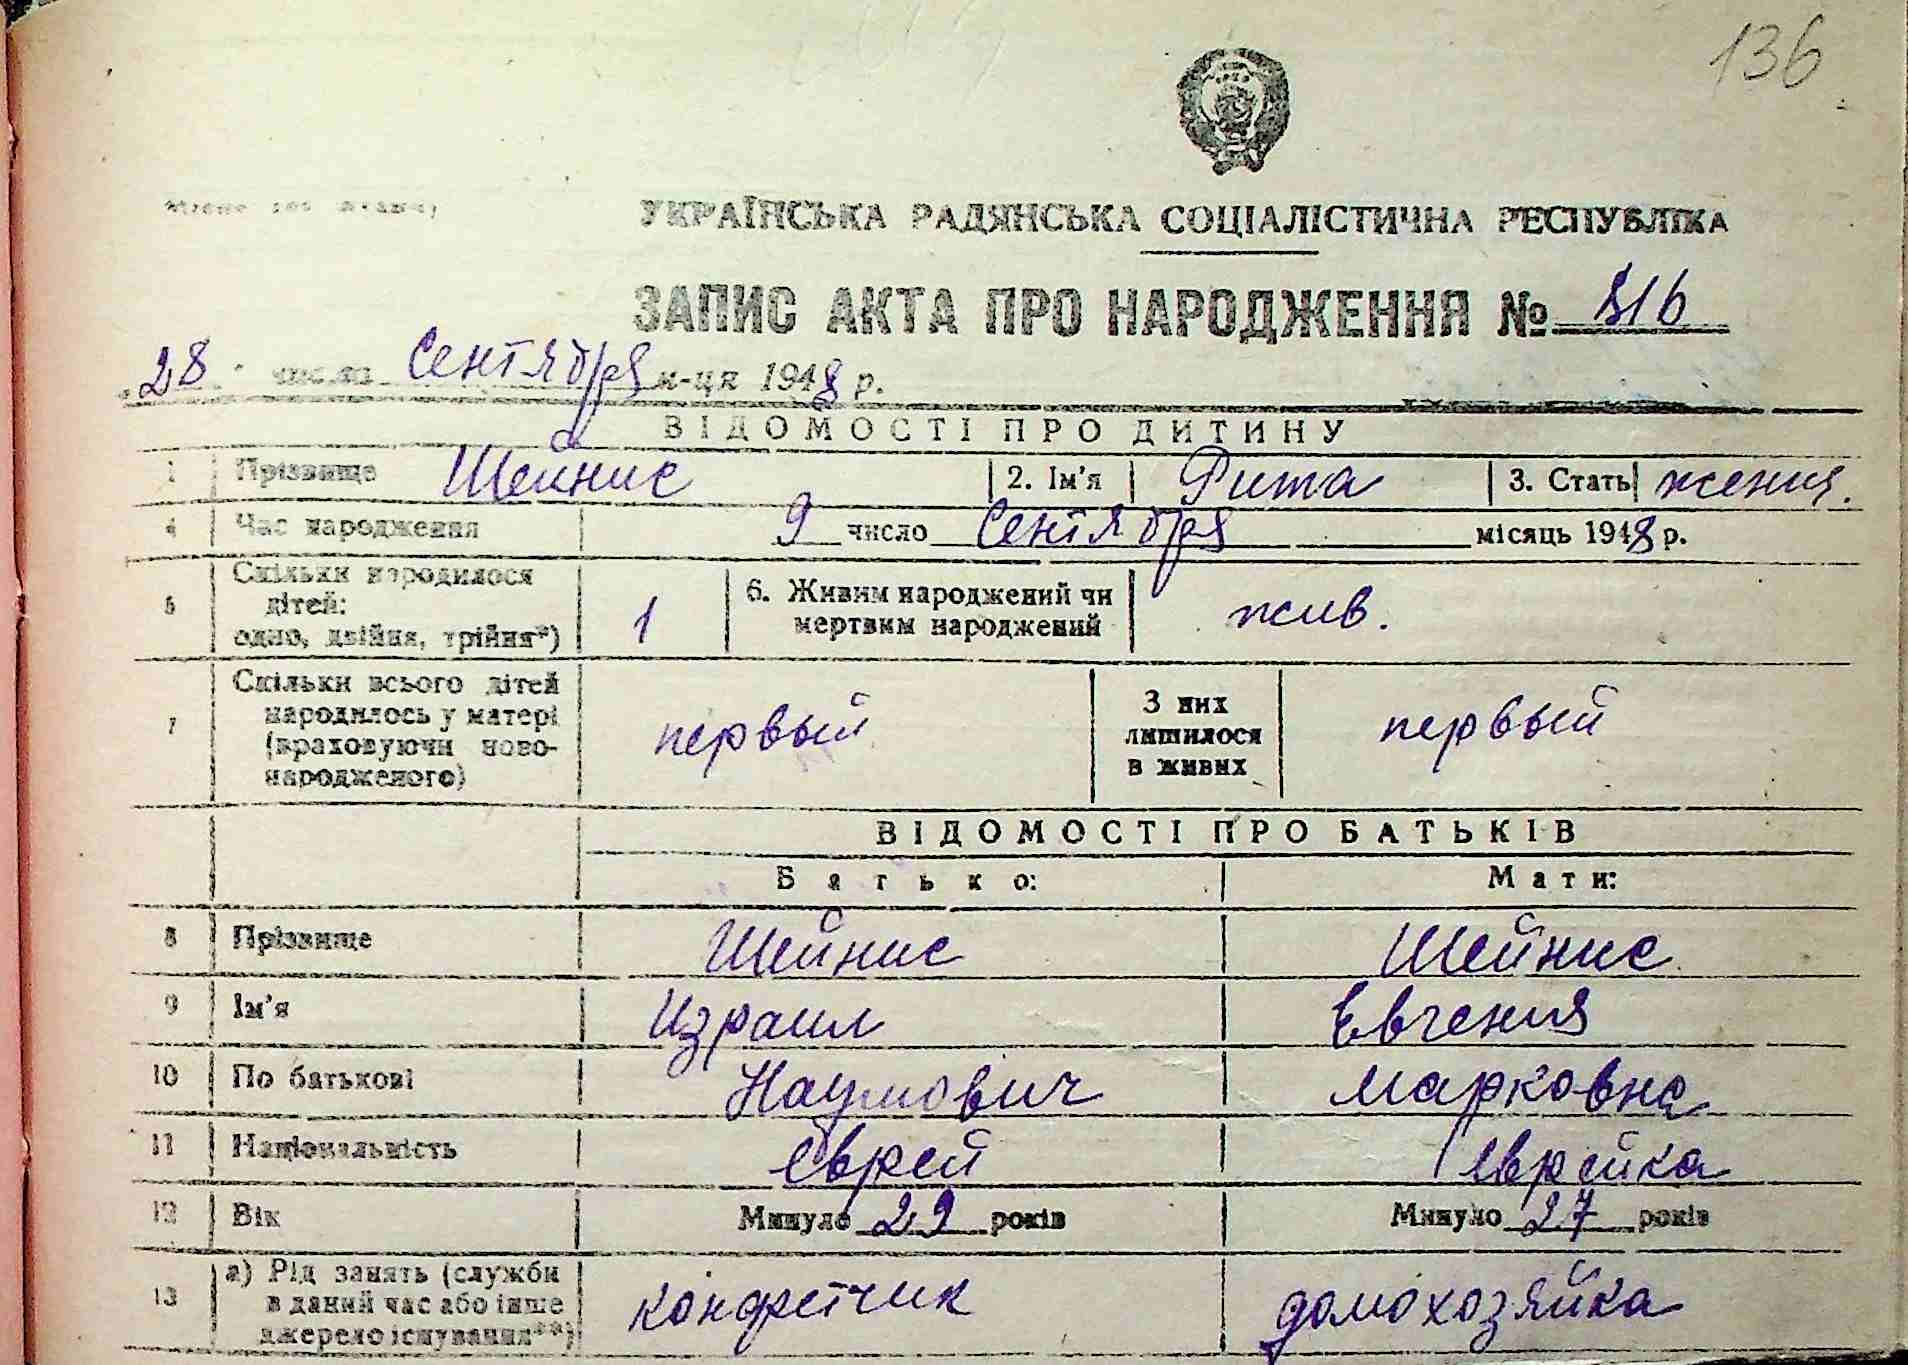 136
УКРАЇНСЬКА РАДЯНСЬКА СОЦІАЛІСТИЧНА РЕСПУБЛІКА
ЗАПИС АКТА ПРО НАРОДЖЕННЯ № 816
28 числа Сентября м-ця 1948 р.
ВІДОМОСТІ ПРО ДИТИНУ
1 Прізвище Шейнис 2. Ім'я Рита 3. Стать женщ.
4 Час народження 9 число Сентября місяць 1948 р.
5 Скільки народилося дітей: одно, двійня, трійня*) 1 6. Живим народжений чи мертвим народжений жив.
7 Скільки всього дітей народилось у матері (враховуючи ново-народженого) первый З них лишилося в живих первый
ВІДОМОСТІ ПРО БАТЬКІВ
Батько: Мати:
8 Прізвище Шейнис Шейнис
9 Ім'я Израил Евгения
10 По батькові Наумович Марковна
11 Національність еврей еврейка
12 Вік Минуло 29 років Минуло 27 років
13 а) Рід занять (служби в даний час або інше джерело існування**) конфетчик домохозяйка